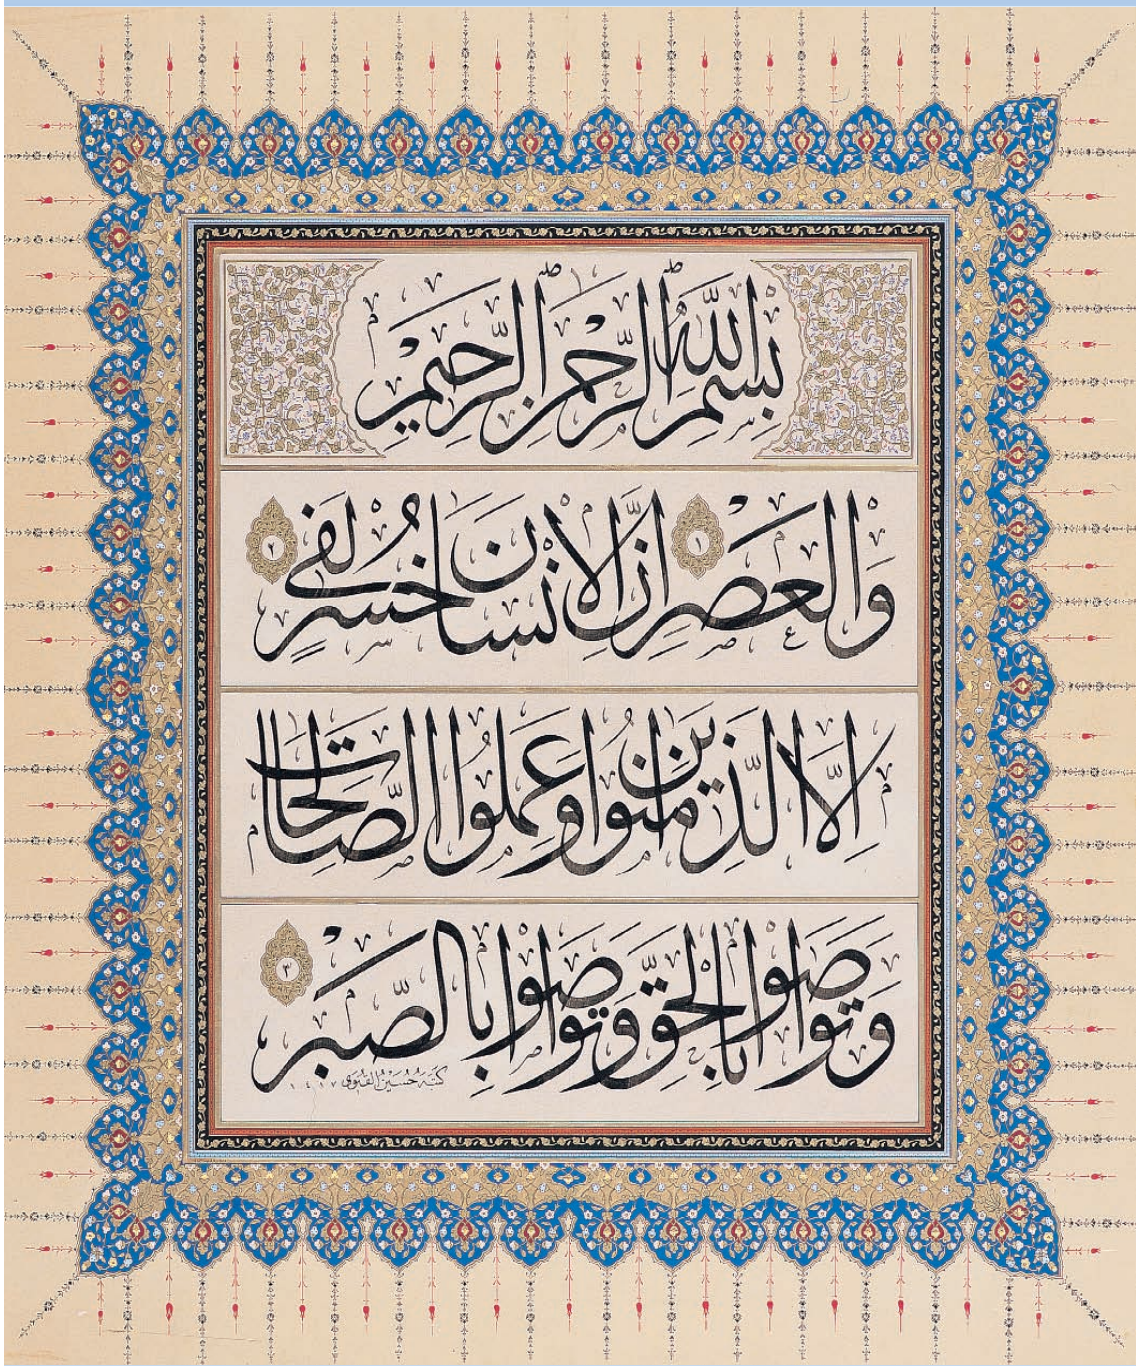 بِسْمِ اللّٰهِ الرَّحْمٰنِ الرَّحِيمِ
وَالْعَصْرِ ١ اِنَّ الْاِنْسَانَ لَفِى خُسْرٍ ٢
اِلَّا الَّذِينَ اٰمَنُوا وَعَمِلُوا الصَّالِحَاتِ
وَتَوَاصَوْا بِالْحَقِّ وَتَوَاصَوْا بِالصَّبْرِ ٣